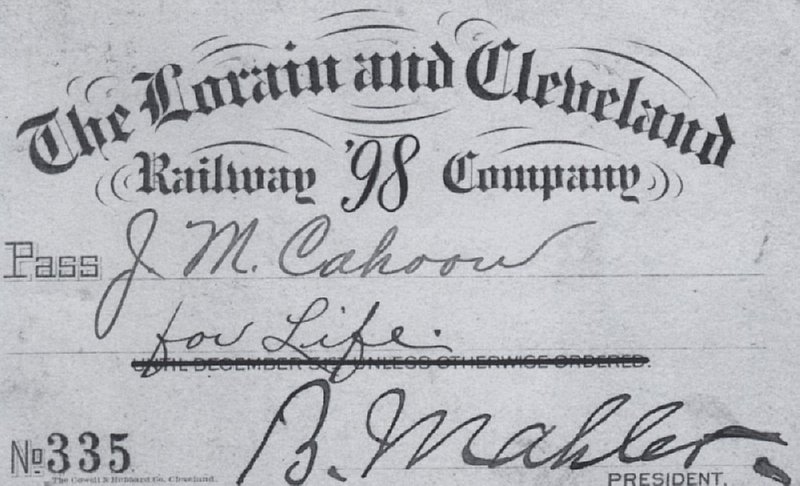 The Lorain and Cleveland
Railway '98 Company
Pass J. M. Cahoon
for Life.
UNTIL DECEMBER 31ST UNLESS OTHERWISE ORDERED.
B. Mahler
No 335
PRESIDENT.
The Cowell & Hubbard Co. Cleveland.